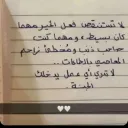 لا تستنقص فعل الخير مهما
كان بسيط ومهما كنت
صاحب ذنب ومخطئ زاحم
المعاصي بالطاعات..
لا تدري أي عمل يدخلك
الجنة.